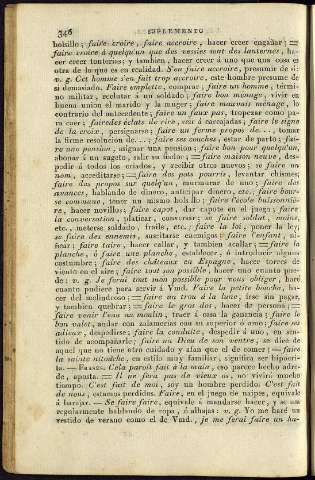 346 SUPLEMENTO
bolsillo; faire croire, faire accroire, hacer creer engañar; =
faire croire á quelqu'un que des vessies sont des lanternes, ha-
cer creer tonterías; y tambien, hacer creer á uno que una cosa es
otra de lo que es en realidad. S'en faire accroire, presumir de sí:
v. g. Cet homme s'en fait trop accroire, este hombre presume de
sí demasiado. Faire emplette, comprar; faire un homme, térmi-
no militar, reclutar á un soldado; faire bon ménage, vivir en
buena union el marido y la muger; faire mauvais ménage, lo
contrario del antecedente; faire un faux pas, tropezar como pa-
ra caer; faire des éclats de rire, reir á carcajadas; faire le signe
de la croix, persignarse; faire un ferme propos de..., tomar
la firme resolucion de...; faire ses couches, estar de parto; fai-
re une pension, asignar una pension; faire bon pour quelqu'un,
abonar á un sugeto, salir su fiador; = faire maison neuve, des-
pedir á todos los criados, y recibir otros nuevos; se faire un
nom, acreditarse; = faire des pots pourris, levantar chismes;
faire des propos sur quelqu'un, murmurar de uno; faire des
avances, hablando de dinero, anticipar dinero, etc.; faire bour-
se commune, tener un mismo bolsillo; faire l'école buissonniè-
re, hacer novillos; faire capot, dar capote en el juego; faire
la conversation, platicar, conversar; se faire soldat, moine,
etc., meterse soldado, fraile, etc.; faire la loi, poner la ley;
se faire des ennemis, suscitarse enemigos; faire l'enfant,
ficar; faire taire, hacer callar, y tambien acallar; = faire la
planche, ó faire une planche, establecer, ó introducir alguna
costumbre; faire des châteaux en Espagne, hacer torres de
viento en el aire; faire tout son possible, hacer uno cuanto pue-
de: v. g. Je ferai tout mon possible pour vous obliger, haré
cuanto pudiere para servir á Vmd. Faire la petite bouche, ha-
cer del melindroso; = faire un trou à la lune, irse sin pagar,
y tambien quebrar; = faire le gros dos, hacer de persona; =
faire venir l'eau au moulin, traer á casa la ganancia; faire le
bon valet, andar con zalamerías con su superior ó amo; faire ses
adieux, despedirse; faire la conduite, despedir á uno, en sen-
tido de acompañarle; faire un Dieu de son ventre, se dice de
aquel que no tiene otro cuidado y afan que el de comer; = faire
la sainte nitouche, en estilo muy familiar, significa ser hipocri-
ta. — FRASES. Cela paroît fait à la main, eso parece hecho adre-
de, aposta. = Il ne fera pas de vieux os, no vivirá mucho
tiempo. C'est fait de moi, soy un hombre perdido. C'est fait
de nous, estamos perdidos. Faire, en el juego de naipes, equivale
á barajar. — Se faire faire, equivale á mandarse hacer, y se usa
regularmente hablando de ropa, ó alhajas: v. g. Yo me haré un
vestido de verano como el de Vmd., je me ferai faire un ha-